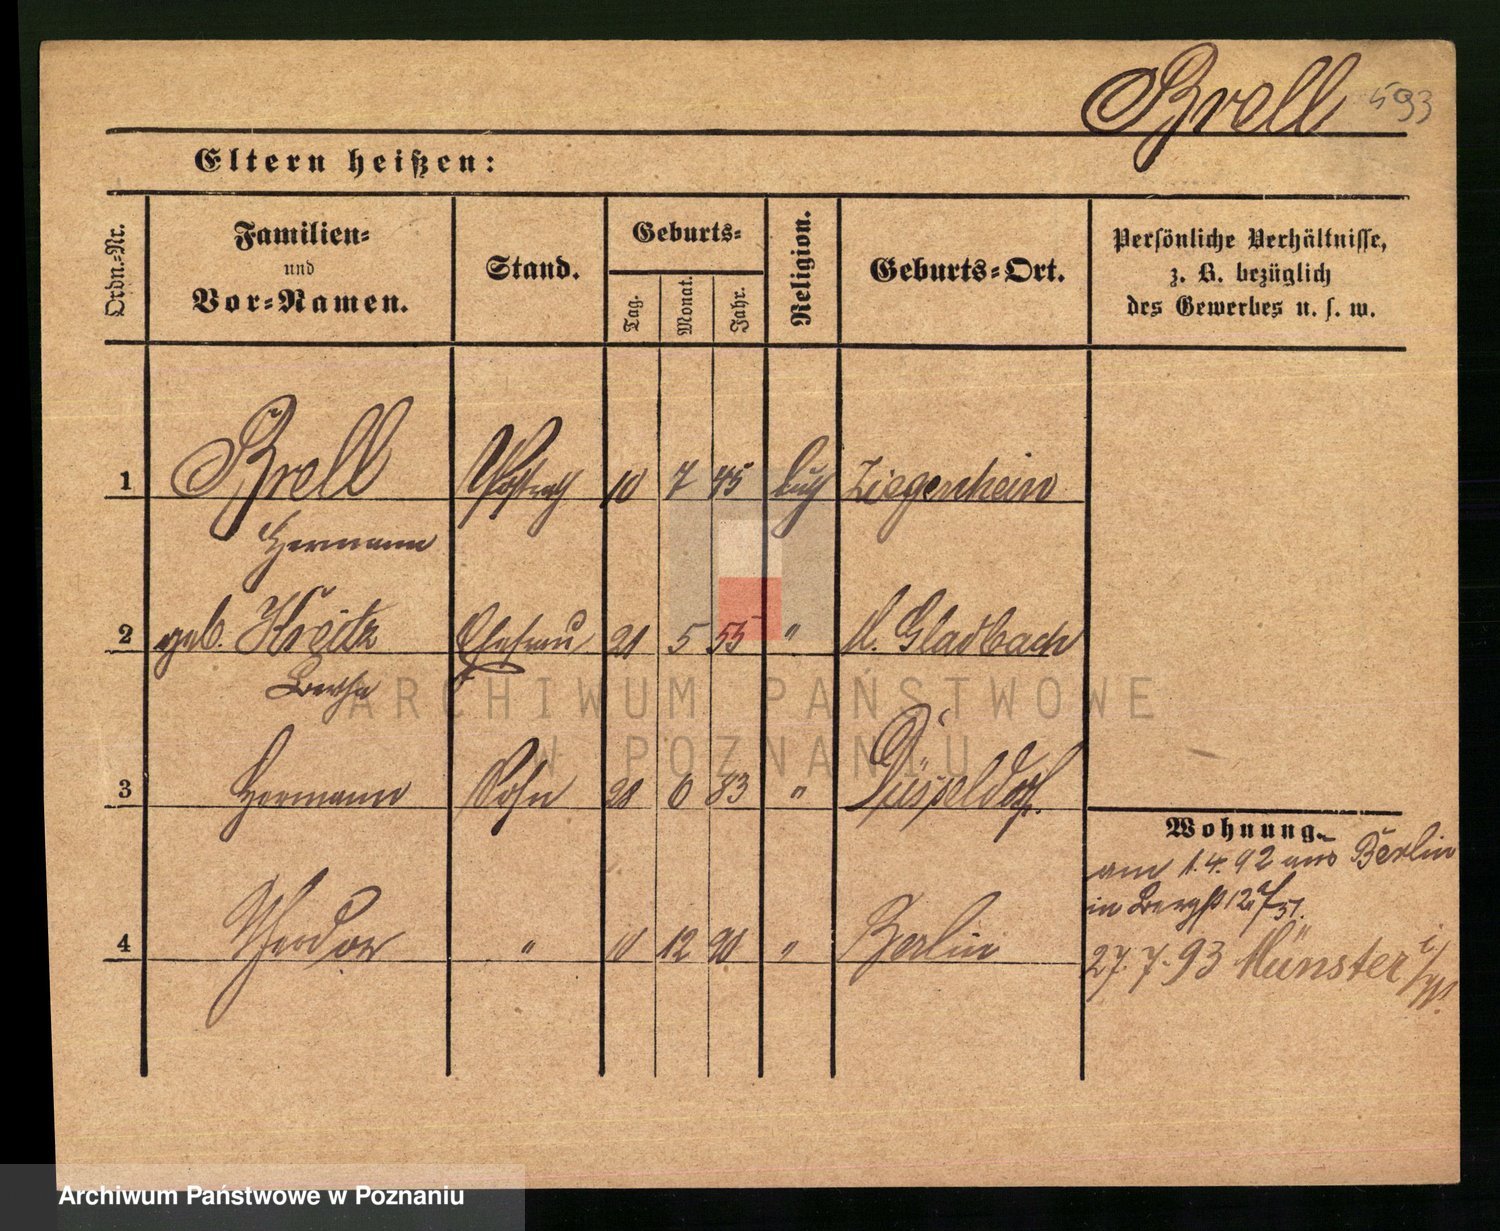 Brell 593
Eltern heißen:
Ordn.-Nr.
Familien-
und
Vor-Namen.
Stand.
Geburts-
Tag.
Monat.
Jahr.
Religion.
Geburts-Ort.
Persönliche Verhältnisse,
z. B. bezüglich
des Gewerbes u. s. w.
1 Brell Postrath 10 7 45 Ziegenhein
Hermann
2 geb. Ehefrau 21 5 55 " M. Gladbach
3 Hermann Sohn 28 6 83 " Düsseldorf.
4 Theodor " 10 12 90 " Berlin
Wohnung.
am 1.4.92 aus Berlin
in
27.7.93 Münster i/W.
ARCHIWUM PAŃSTWOWE
W POZNANIU
Archiwum Państwowe w Poznaniu